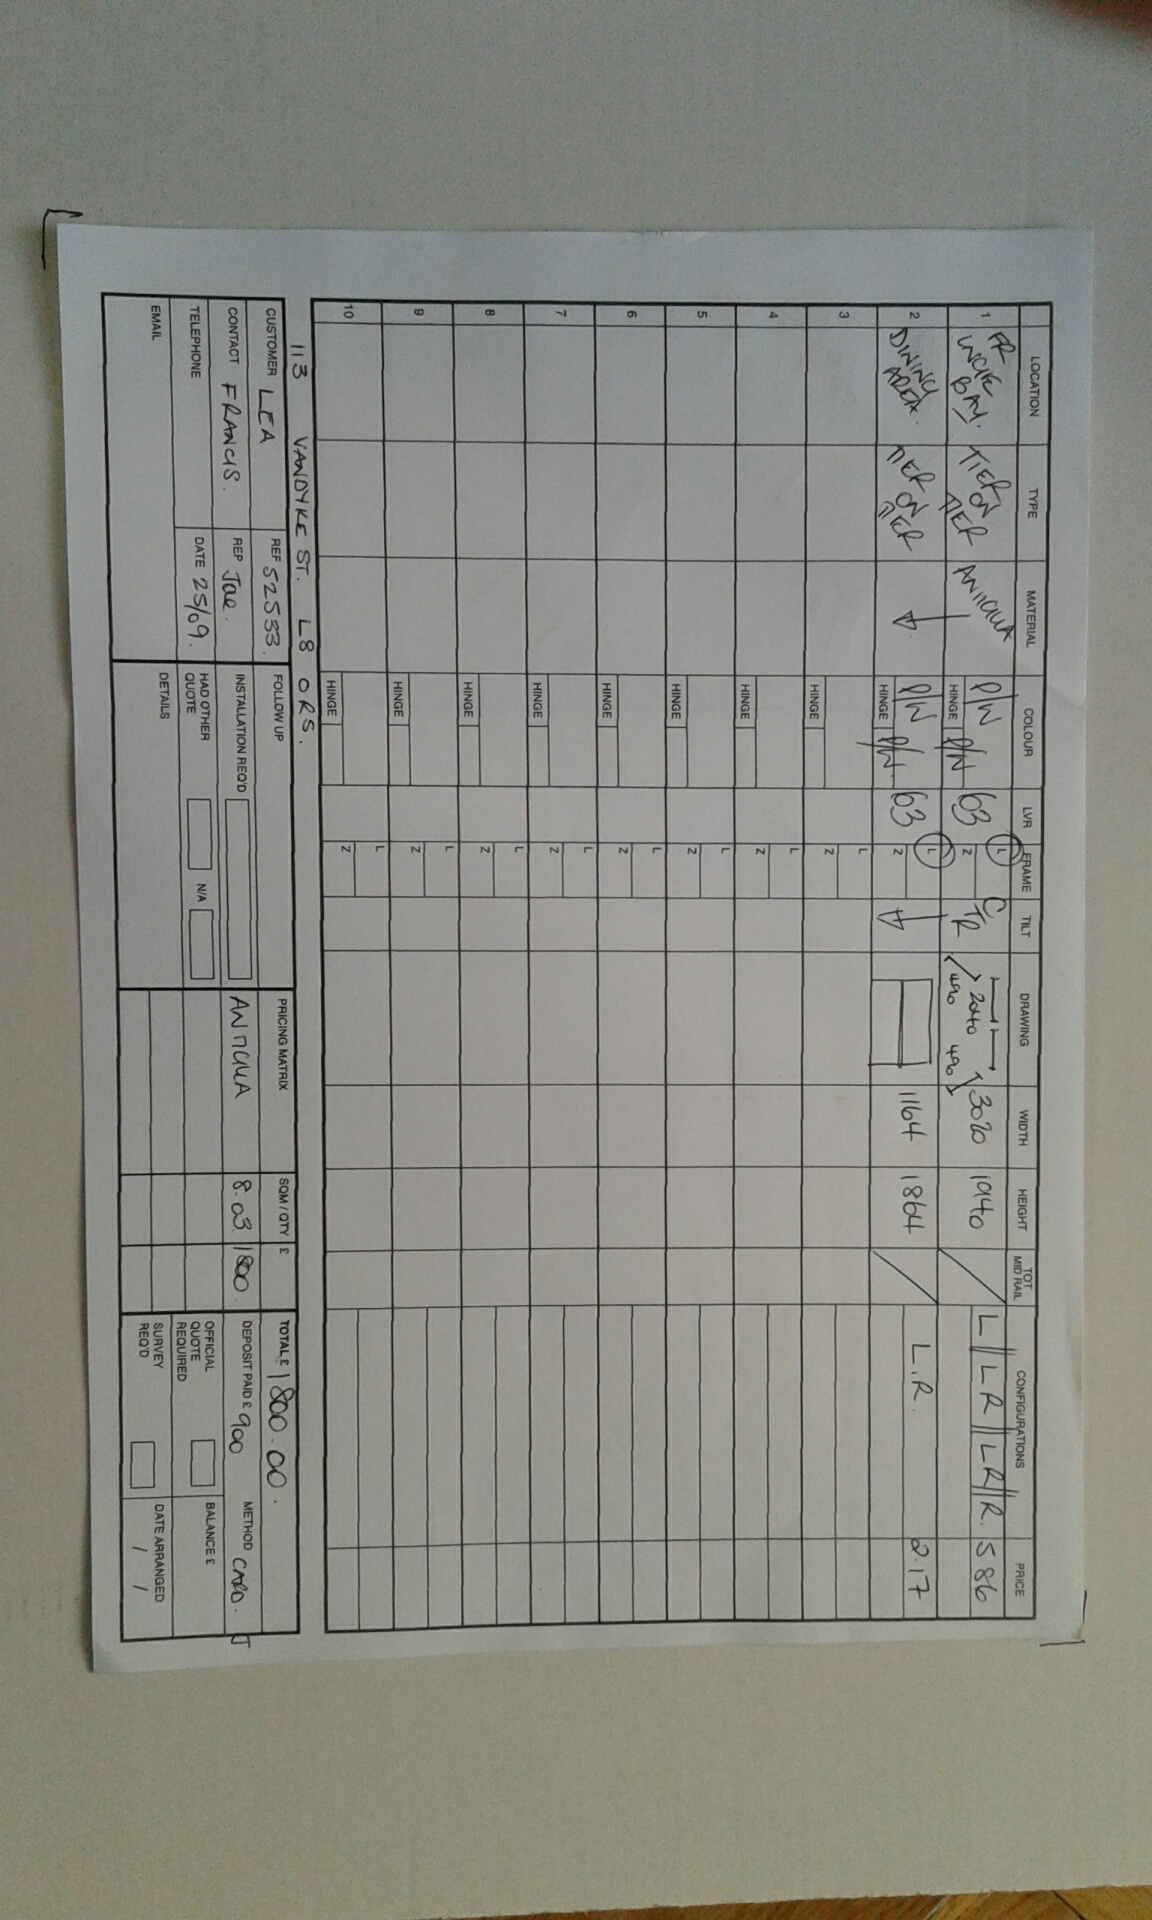 LOCATION TYPE MATERIAL COLOUR LVR FRAME TILT DRAWING WIDTH HEIGHT TOT MID RAIL CONFIGURATIONS PRICE
1 FR BAY. TIER ON TIER ANTIGUA P/W HINGE P/W 63 L Z C/TR 2040 490 490 3020 1940 L//LR//LR//R. 5.86
2 DINING AREA. TIER ON TIER P/W HINGE P/W 63 L Z 1164 1864 L.R. 2.17
3 HINGE L Z
4 HINGE L Z
5 HINGE L Z
6 HINGE L Z
7 HINGE L Z
8 HINGE L Z
9 HINGE L Z
10 HINGE L Z
113 VANDYKE ST. L8 0RS.
CUSTOMER LEA REF 52533.
CONTACT FRANCIS. REP Jae.
TELEPHONE DATE 25/09.
EMAIL
FOLLOW UP
INSTALLATION REQ'D
HAD OTHER QUOTE N/A
DETAILS
PRICING MATRIX SQM / QTY £
ANTIGUA 8.03 1800.
TOTAL £ 1800.00.
DEPOSIT PAID £ 900 METHOD CARD.
OFFICIAL QUOTE REQUIRED BALANCE £
SURVEY REQ'D DATE ARRANGED / /